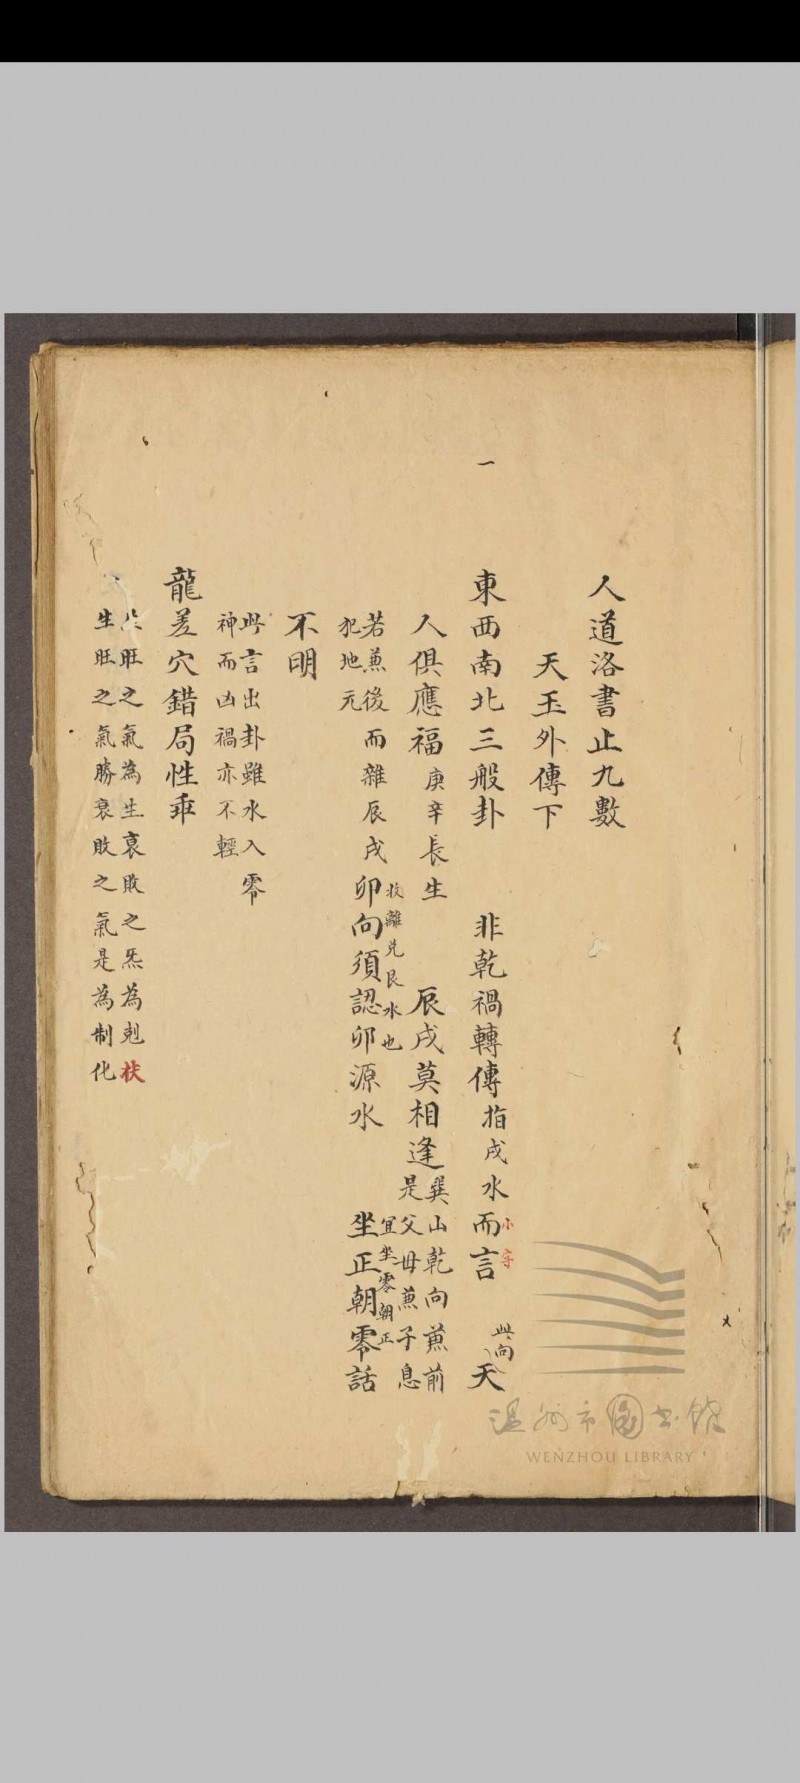 人道洛書止九數
天玉外傳下
一
東西南北三般卦 非乾禍轉傳指戍水而言 此向天
小字
人俱應福庚辛長生 辰戍莫相逢巽山乾向蕉前
是父母蕉子息
若蕉後而雜辰戍卯向須認卯源水 坐正朝零話
犯地元
收離兌艮水也
宜坐零朝正
不明
此言出卦雖水入零
神而凶禍亦不輕
龍差穴錯局性乖
旺之氣為生衰敗之炁為剋扶
生旺之氣勝衰敗之氣是為制化
温州市圖書館
WENZHOU LIBRARY